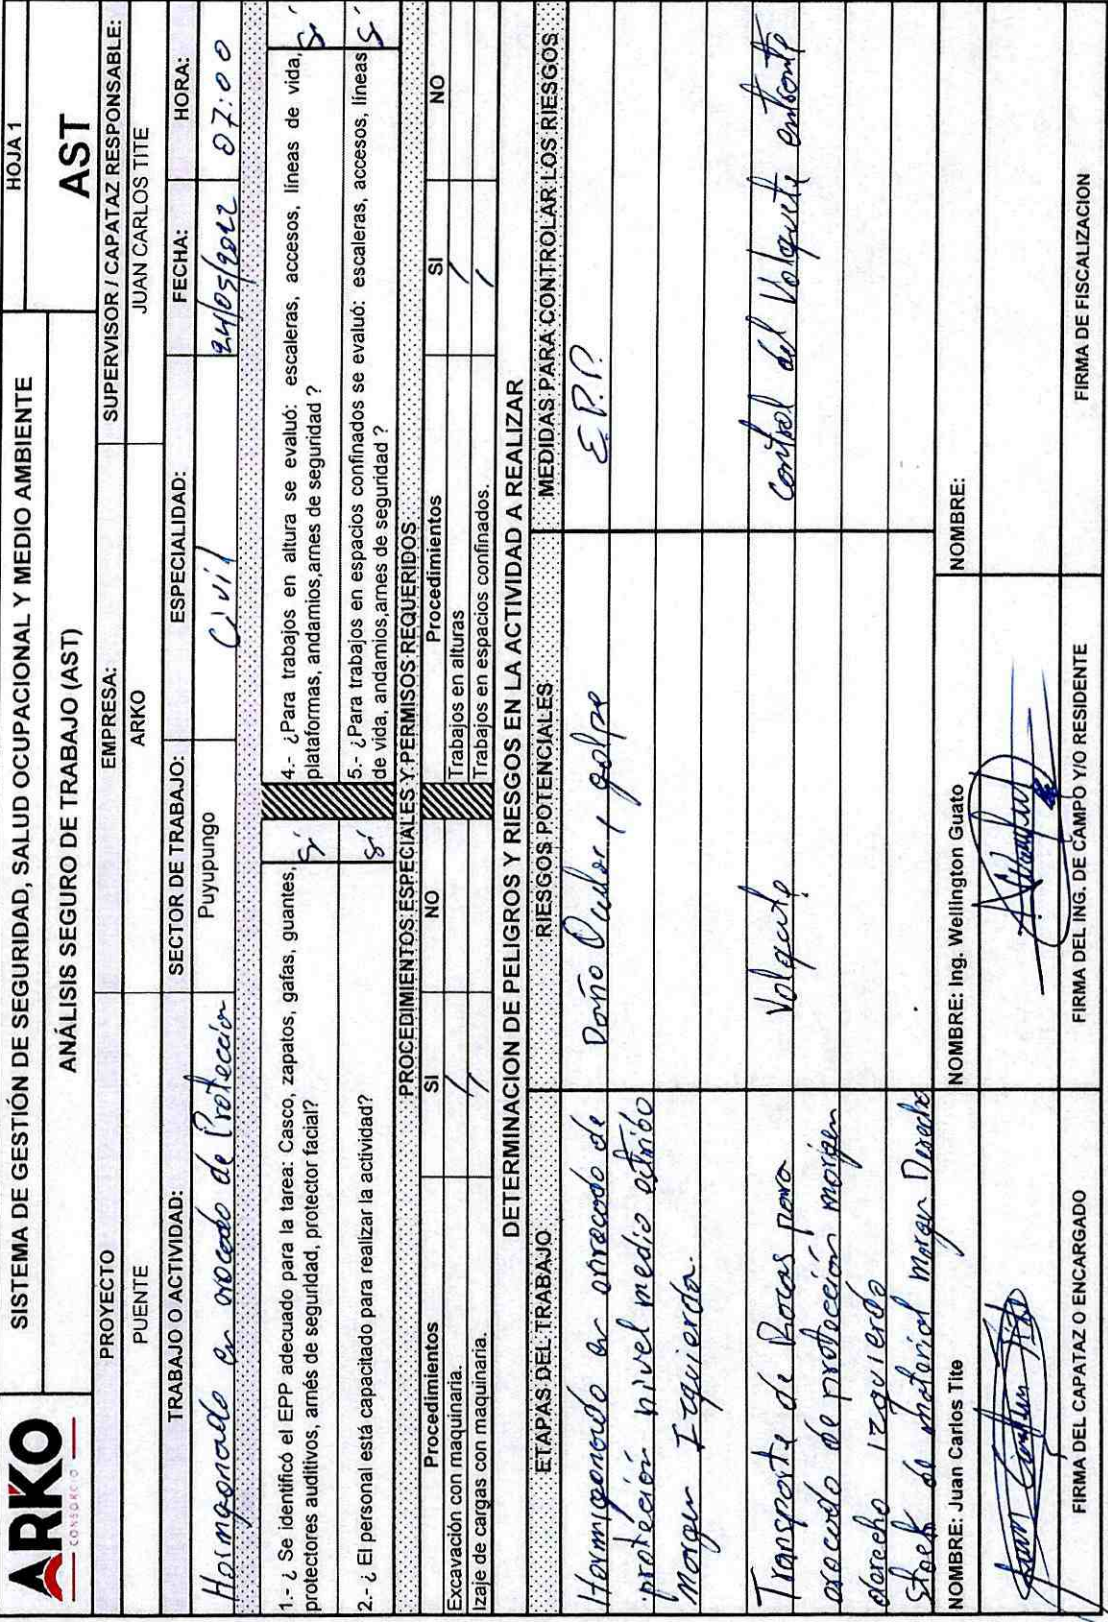 ARKO
CONSORCIO
SISTEMA DE GESTIÓN DE SEGURIDAD, SALUD OCUPACIONAL Y MEDIO AMBIENTE
HOJA 1
ANÁLISIS SEGURO DE TRABAJO (AST)
AST
PROYECTO
EMPRESA:
SUPERVISOR / CAPATAZ RESPONSABLE:
PUENTE
ARKO
JUAN CARLOS TITE
TRABAJO O ACTIVIDAD:
SECTOR DE TRABAJO:
ESPECIALIDAD:
FECHA:
HORA:
Hormigonado en Protección
Puyupungo
Civil
24/05/2022
07:00
1.- ¿ Se identificó el EPP adecuado para la tarea: Casco, zapatos, gafas, guantes, protectores auditivos, arnés de seguridad, protector facial?
Sí
4.- ¿Para trabajos en altura se evaluó: escaleras, accesos, líneas de vida, plataformas, andamios,arnes de seguridad ?
Sí
2.- ¿ El personal está capacitado para realizar la actividad?
Sí
5.- ¿Para trabajos en espacios confinados se evaluó: escaleras, accesos, líneas de vida, andamios,arnes de seguridad ?
Sí
PROCEDIMIENTOS ESPECIALES Y PERMISOS REQUERIDOS
Procedimientos
SI
NO
Procedimientos
SI
NO
Excavación con maquinaria.
/
Trabajos en alturas
/
Izaje de cargas con maquinaria.
/
Trabajos en espacios confinados.
/
DETERMINACION DE PELIGROS Y RIESGOS EN LA ACTIVIDAD A REALIZAR
ETAPAS DEL TRABAJO
RIESGOS POTENCIALES
MEDIDAS PARA CONTROLAR LOS RIESGOS
Hormigonado en de
Daño Ocular y golpe
E.P.P.
protección nivel medio estribo
Margen Izquierda.
Transporte de Rocas para
Volquete
Control del Volquete
de protección margen
derecho izquierdo
Stock de material margen Derecho
NOMBRE: Juan Carlos Tite
NOMBRE: Ing. Wellington Guato
NOMBRE:
FIRMA DEL CAPATAZ O ENCARGADO
FIRMA DEL ING. DE CAMPO Y/O RESIDENTE
FIRMA DE FISCALIZACION